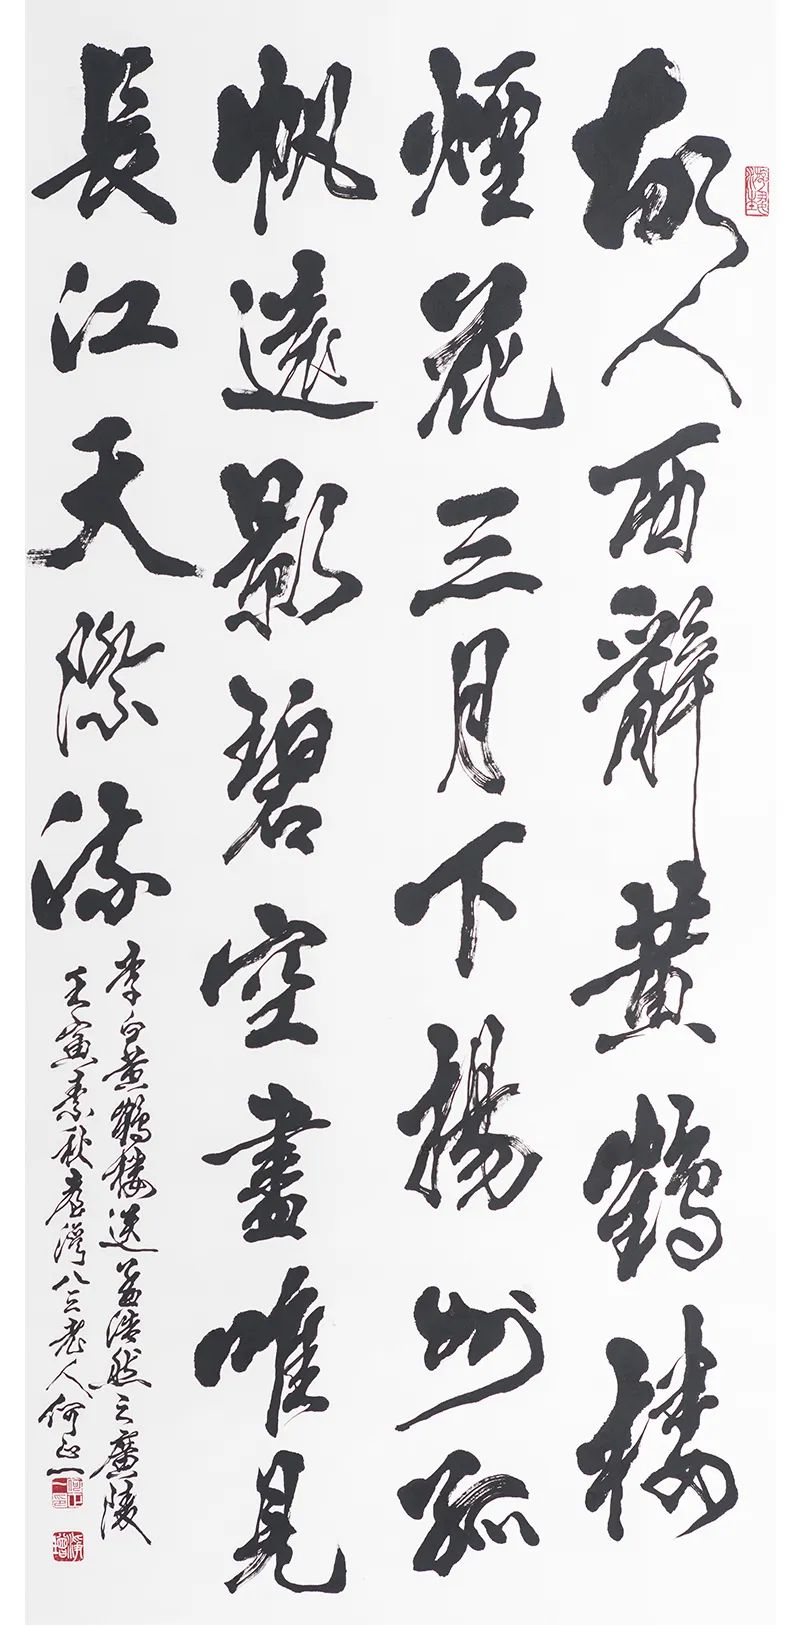 故人西辭黃鶴樓
煙花三月下揚州孤
帆遠影碧空盡唯見
長江天際流
李白黃鶴樓送孟浩然之廣陵
壬寅素秋臺灣八三老人何正一